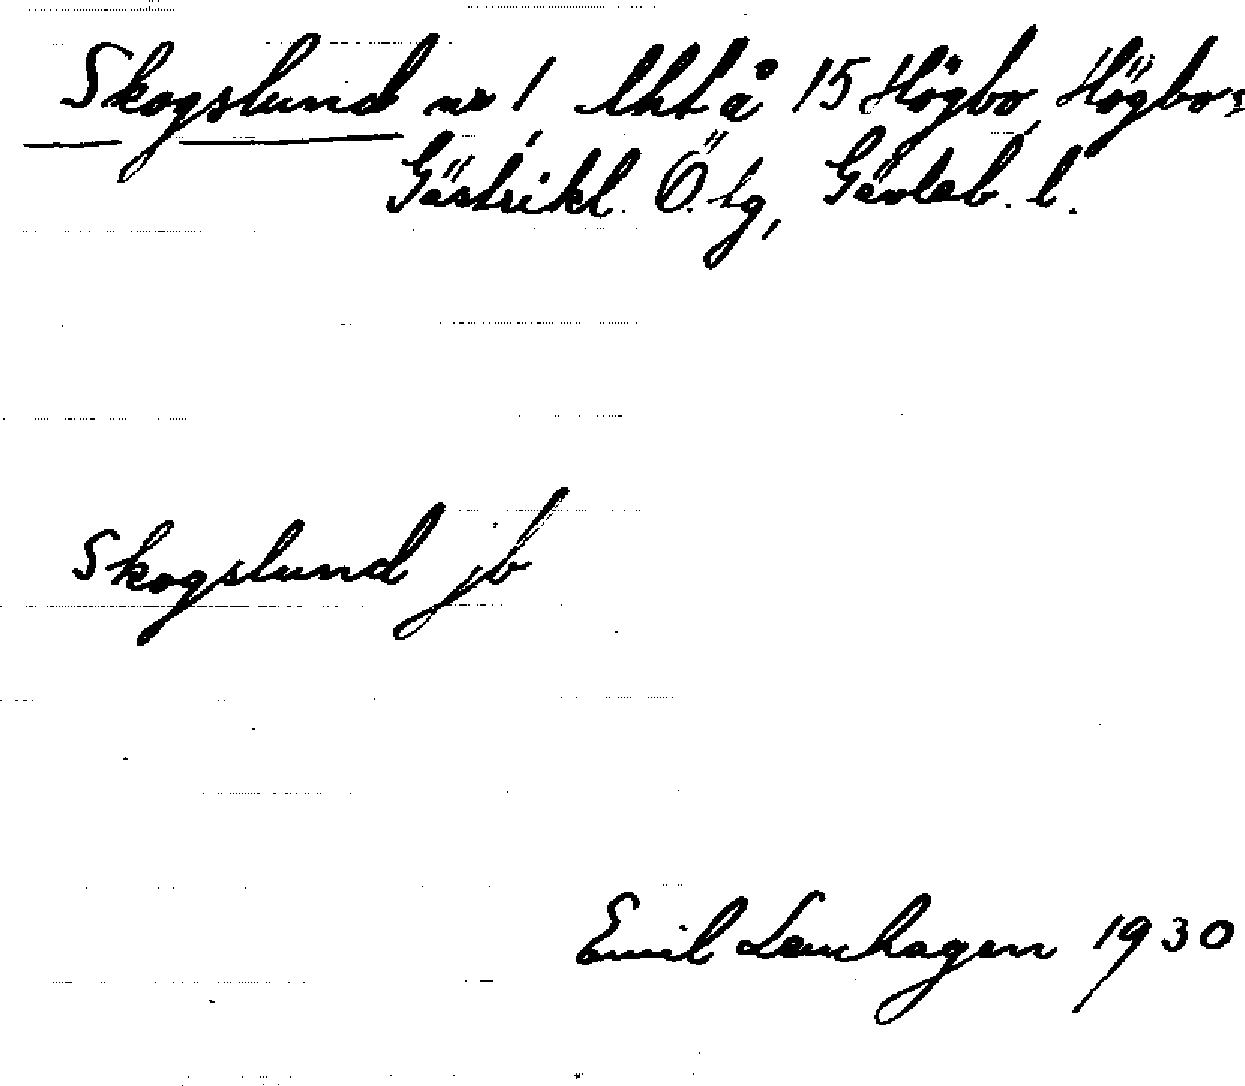 Skogslund nr 1 lht å 15 Högbo, Högbo s,
Gästrikl. Ö. tg, Gävleb. l.
Skogslund jb
Emil Lenhagen 1930